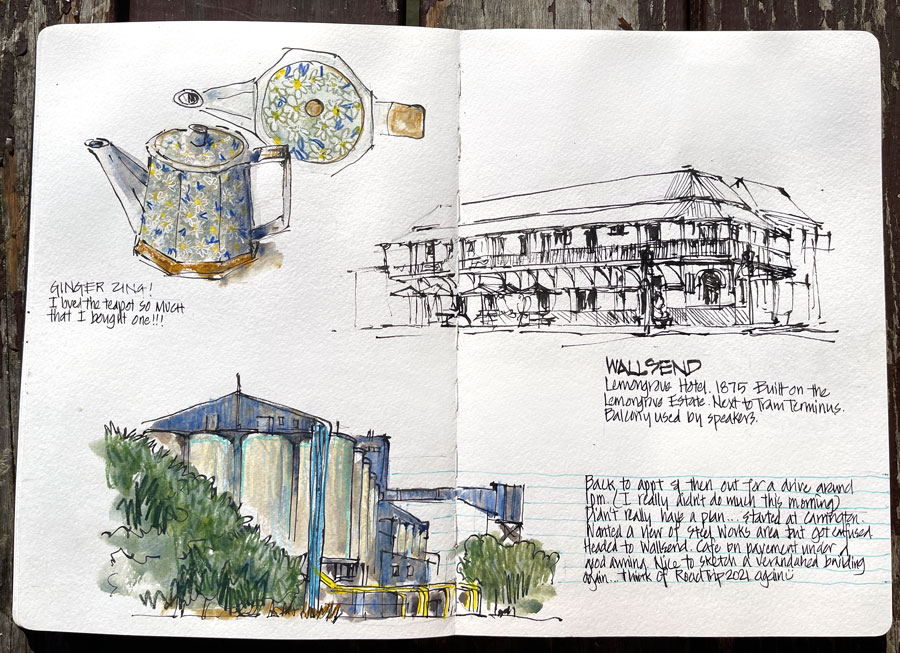 GINGER ZING!
I loved the teapot so MUCH
that I bought one!!!
WALLSEND
Lemongrove Hotel. 1875 Built on the
Lemongrove Estate. Next to Tram Terminus.
Balcony used by speakers.
Back to appt & then out for a drive around
1pm. (I really didn't do much this morning)
Didn't really have a plan... started at Carrington.
Wanted a view of steel works area but got confused
Headed to Wallsend. Cafe on pavement under a
good awning. Nice to sketch a verandahed building
again... think of Road Trip 2021 again